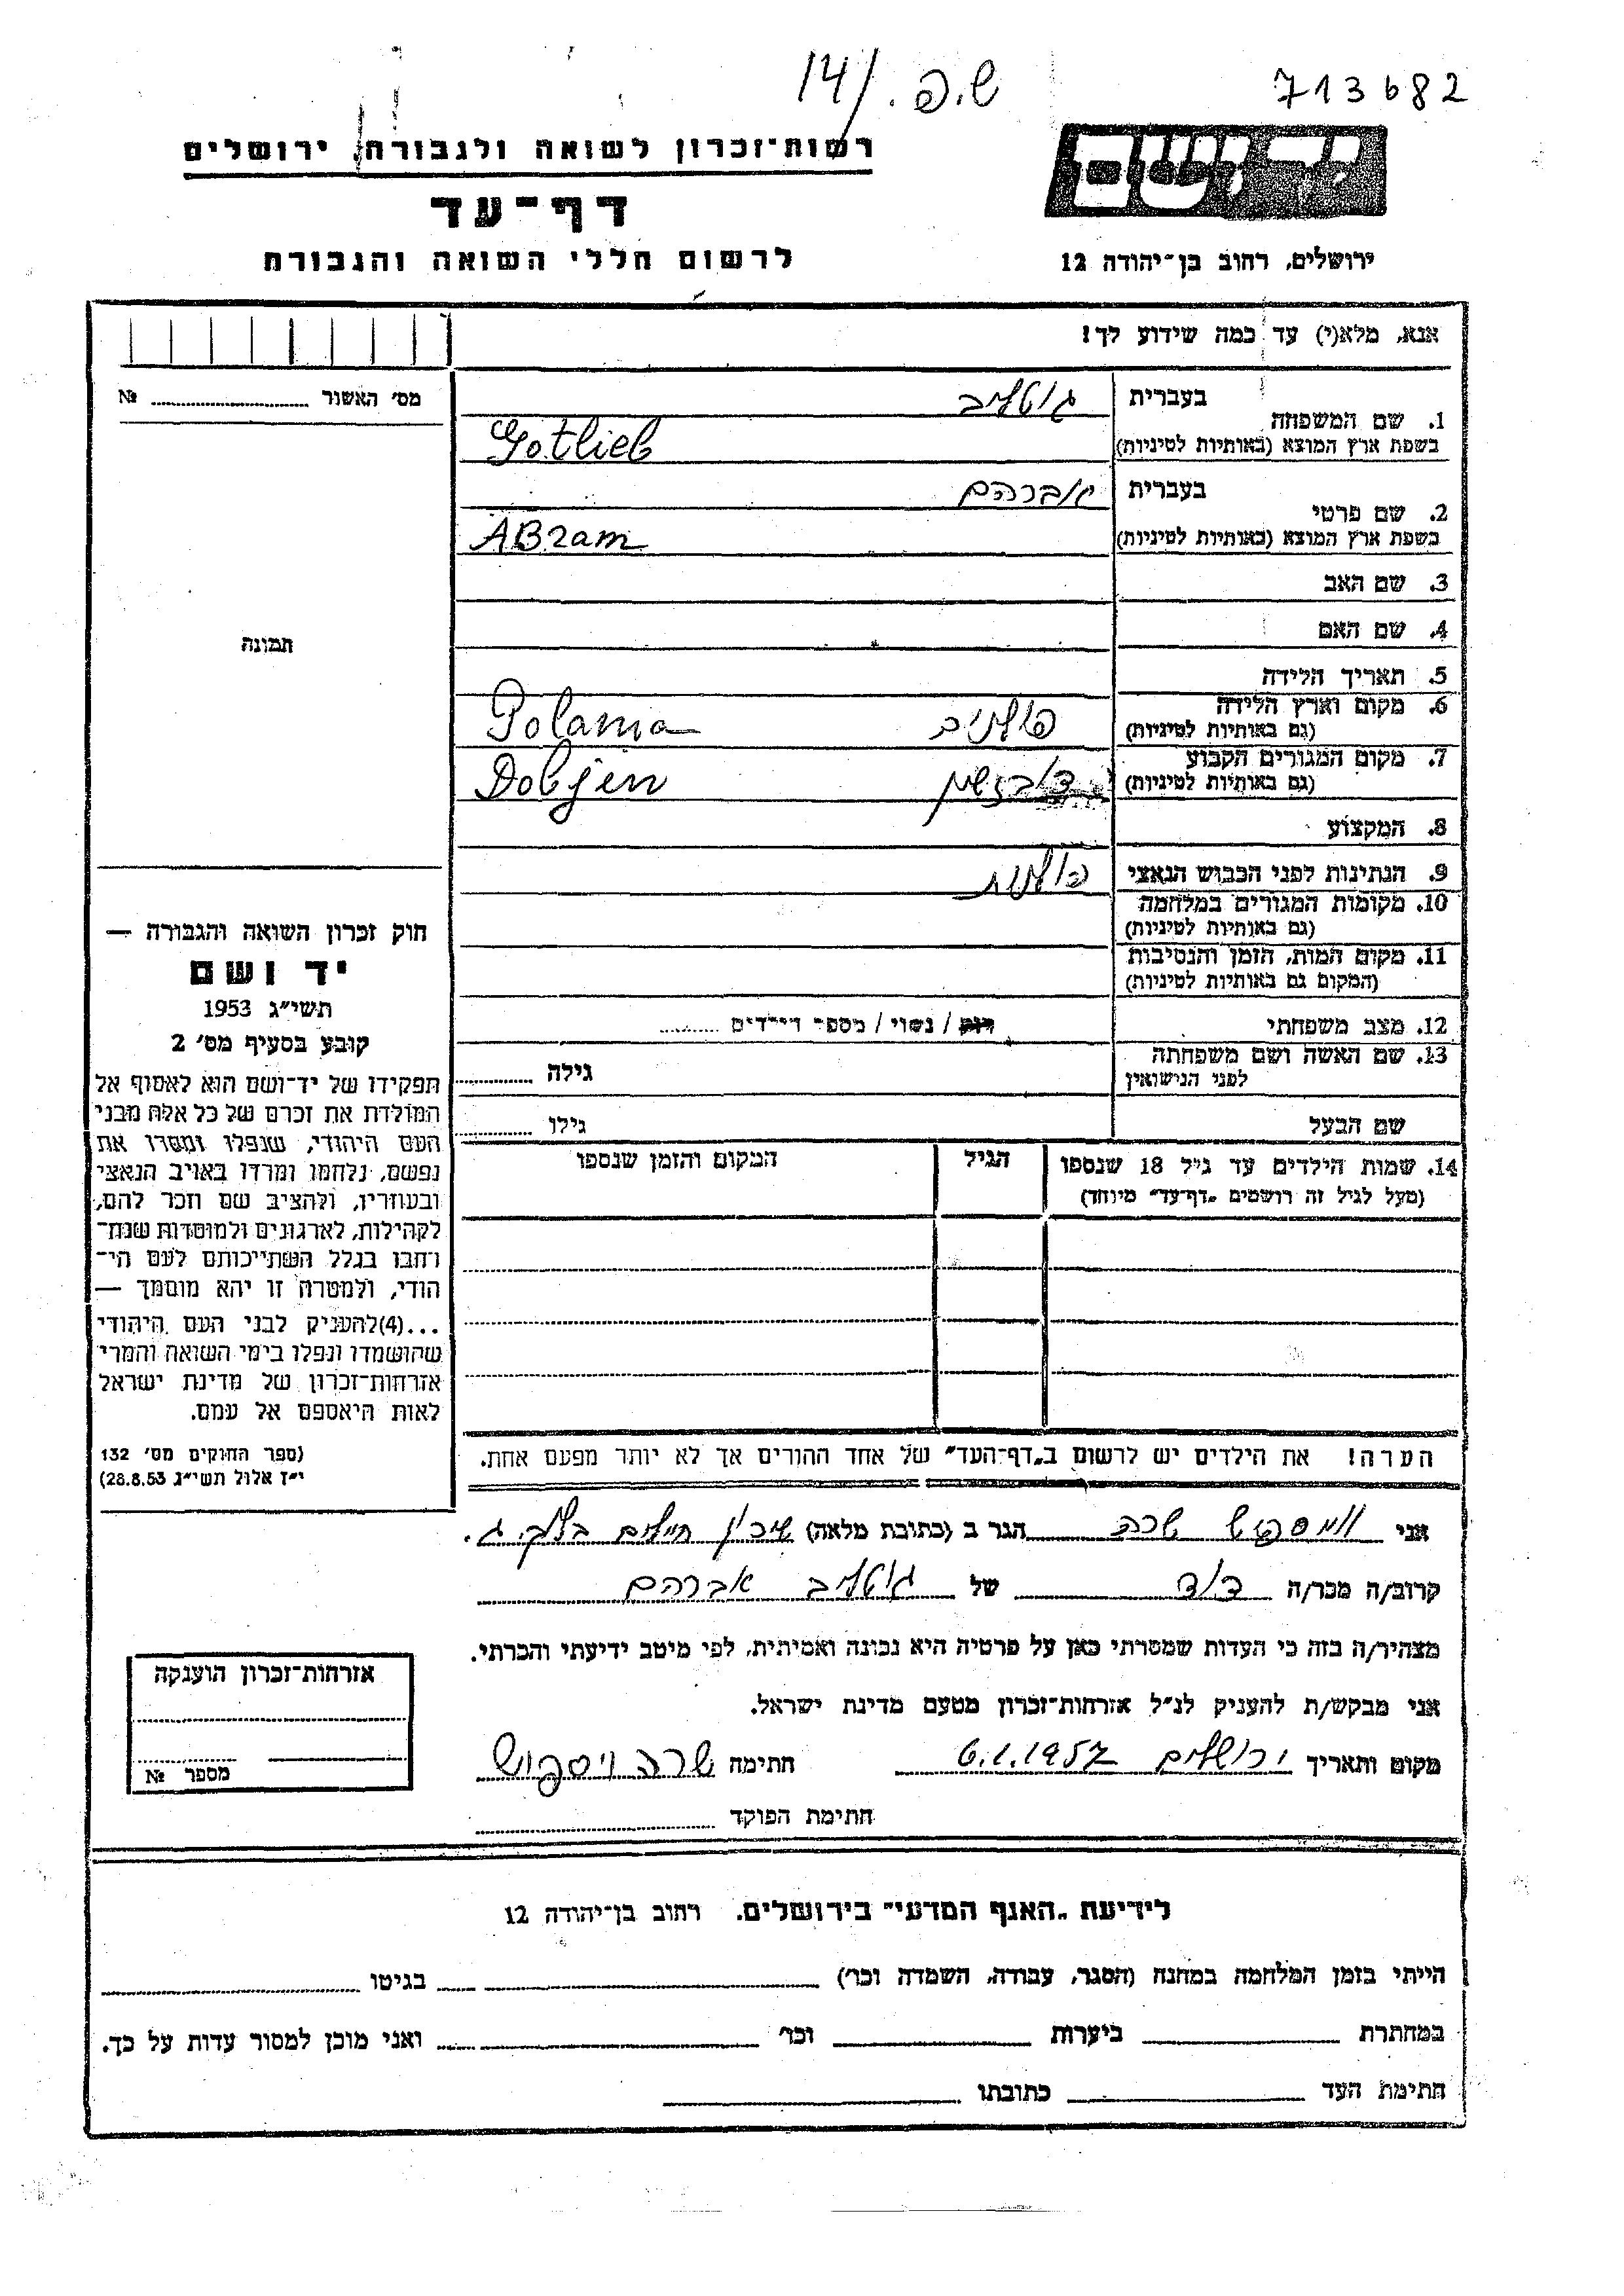 14/ ש.פ. 713682
רשות־זכרון לשואה ולגבורה, ירושלים
יד ושם
דף־עד
לרשום חללי השואה והגבורה
ירושלים, רחוב בן־יהודה 12
אנא, מלא(י) עד כמה שידוע לך!
מס׳ האשור № 
1. שם המשפחה
בעברית גוטליב
בשפת ארץ המוצא (באותיות לטיניות) Gotlieb
2. שם פרטי
בעברית אברהם
בשפת ארץ המוצא (באותיות לטיניות) ABram
3. שם האב
4. שם האם
5. תאריך הלידה
6. מקום וארץ הלידה
(גם באותיות לטיניות) Polania
7. מקום המגורים הקבוע
(גם באותיות לטיניות) Dobjen
8. המקצוע
9. הנתינות לפני הכבוש הנאצי פולנית
10. מקומות המגורים במלחמה
(גם באותיות לטיניות)
11. מקום המות, הזמן והנסיבות
(המקום גם באותיות לטיניות)
12. מצב משפחתי רווק / נשוי / מספר הילדים
13. שם האשה ושם משפחתה
לפני הנישואין גילה
שם הבעל גילו
14. שמות הילדים עד גיל 18 שנספו הגיל המקום והזמן שנספו
(מעל לגיל זה רושמים „דף־עד” מיוחד)
הערה! את הילדים יש לרשום ב„דף־העד” של אחד ההורים אך לא יותר מפעם אחת.
תמונה
חוק זכרון השואה והגבורה —
יד ושם
תשי״ג 1953
קובע בסעיף מס׳ 2
תפקידו של יד־ושם הוא לאסוף אל
המולדת את זכרם של כל אלה מבני
העם היהודי, שנפלו ומסרו את
נפשם, נלחמו ומרדו באויב הנאצי
ובעוזריו, ולהציב שם וזכר להם,
לקהילות, לארגונים ולמוסדות שנח־
רבו בגלל השתייכותם לעם הי־
הודי, ולמטרה זו יהא מוסמך —
...(4)להעניק לבני העם היהודי
שהושמדו ונפלו בימי השואה והמרי
אזרחות־זכרון של מדינת ישראל
לאות היאספם אל עמם.
(ספר החוקים מס׳ 132
י״ז אלול תשי״ג 28.8.53)
אני שרה הגר ב (כתובת מלאה) שיכון חיילים
קרוב/ה מכר/ה דוד של גוטליב אברהם
מצהיר/ה בזה כי העדות שמסרתי כאן על פרטיה היא נכונה ואמיתית, לפי מיטב ידיעתי והכרתי.
אני מבקש/ת להעניק לנ״ל אזרחות־זכרון מטעם מדינת ישראל.
מקום ותאריך ירושלים 6.1.1957 חתימה שרה ויספיש
חתימת הפוקד
אזרחות־זכרון הוענקה
מספר №
לידיעת „האגף המדעי” בירושלים, רחוב בן־יהודה 12
הייתי בזמן המלחמה במחנה (הסגר, עבודה, השמדה וכו׳) בגיטו
במחתרת ביערות וכו׳ ואני מוכן למסור עדות על כך.
חתימת העד כתובתו